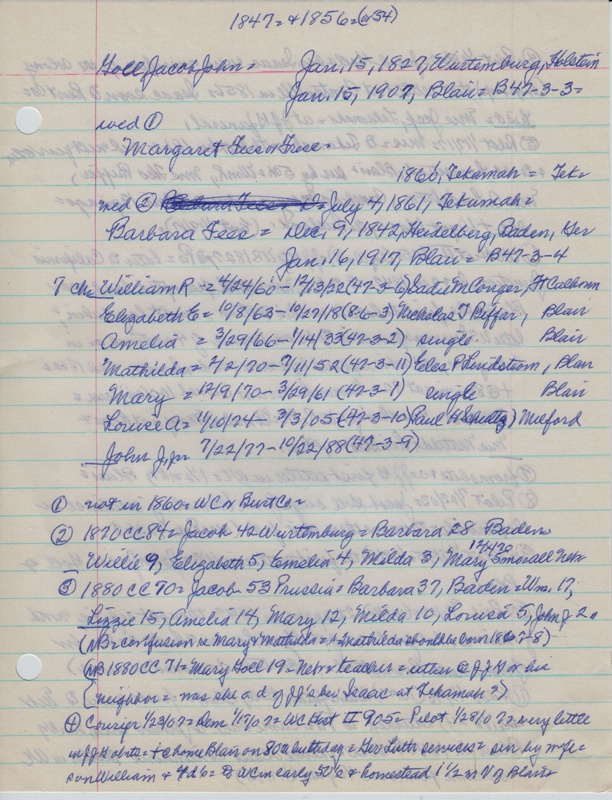 1847= & 1856=(or 54)
Goll, Jacob John = Jan. 15, 1827, Wurtemburg, Holstein
Jan. 15, 1907, Blair = B47-3-3=
wed ①
Margaret Fees or Frees=
1860, Tekamah = Tek=
wed ② July 4, 1861, Tekamah=
Barbara Fees = Dec. 9, 1842, Heidelberg, Baden, Ger
Jan. 16, 1917, Blair = B47-3-4
7 ch= William R = 4/24/60 - 12/13/22 (47-3-6) Satie M Conger, Ft Calhoun
Elizabeth E = 10/8/63 - 10/27/18 (8-6-3) Nicholas T Peffar, Blair
Amelia = 3/29/66 - 1/14/33 (47-3-2) single Blair
Mathilda = 2/2/70 - 7/11/52 (47-3-11) P Lundstrom, Blair
Mary = 12/9/70 - 3/29/61 (47-3-1) single Blair
Louise A = 11/10/74 - 3/3/05 (47-3-10) Paul H Milford
John J, Jr 7/22/77 - 10/22/88 (47-3-9)
① not in 1860= WC or Burt Co=
② 1870 CC 84 = Jacob 42 Wurtemburg = Barbara 28 Baden=
Willie 9, Elizabeth 5, Emelia 4, Milda 3, Mary 5mos all Nebr
③ 1880 CC 70 = Jacob 53 Prussia = Barbara 37, Baden = Wm. 17,
Lizzie 15, Amelia 14, Mary 12, Milda 10, Louisa 5, John J 2=
(NB= confusion re Mary & Mathilda = Mathilda should be born 1867-8)
(NB 1880 CC 71 = Mary Goll 19 = Nebr teacher = either @ JJG or his
{neighbor = was she a d of JJ's bro Isaac at Tekamah?)
④ Courier 1/23/07 = 1/17/07 = WC Hist II 905 = Pilot 1/28/07 = very little
in JJG obits = + @ home Blair on 80th birthday = Ger Luth services = sur by wife=
son William & 4 d = to WC in early 50's & homestead 1 1/2 m N of Blair=